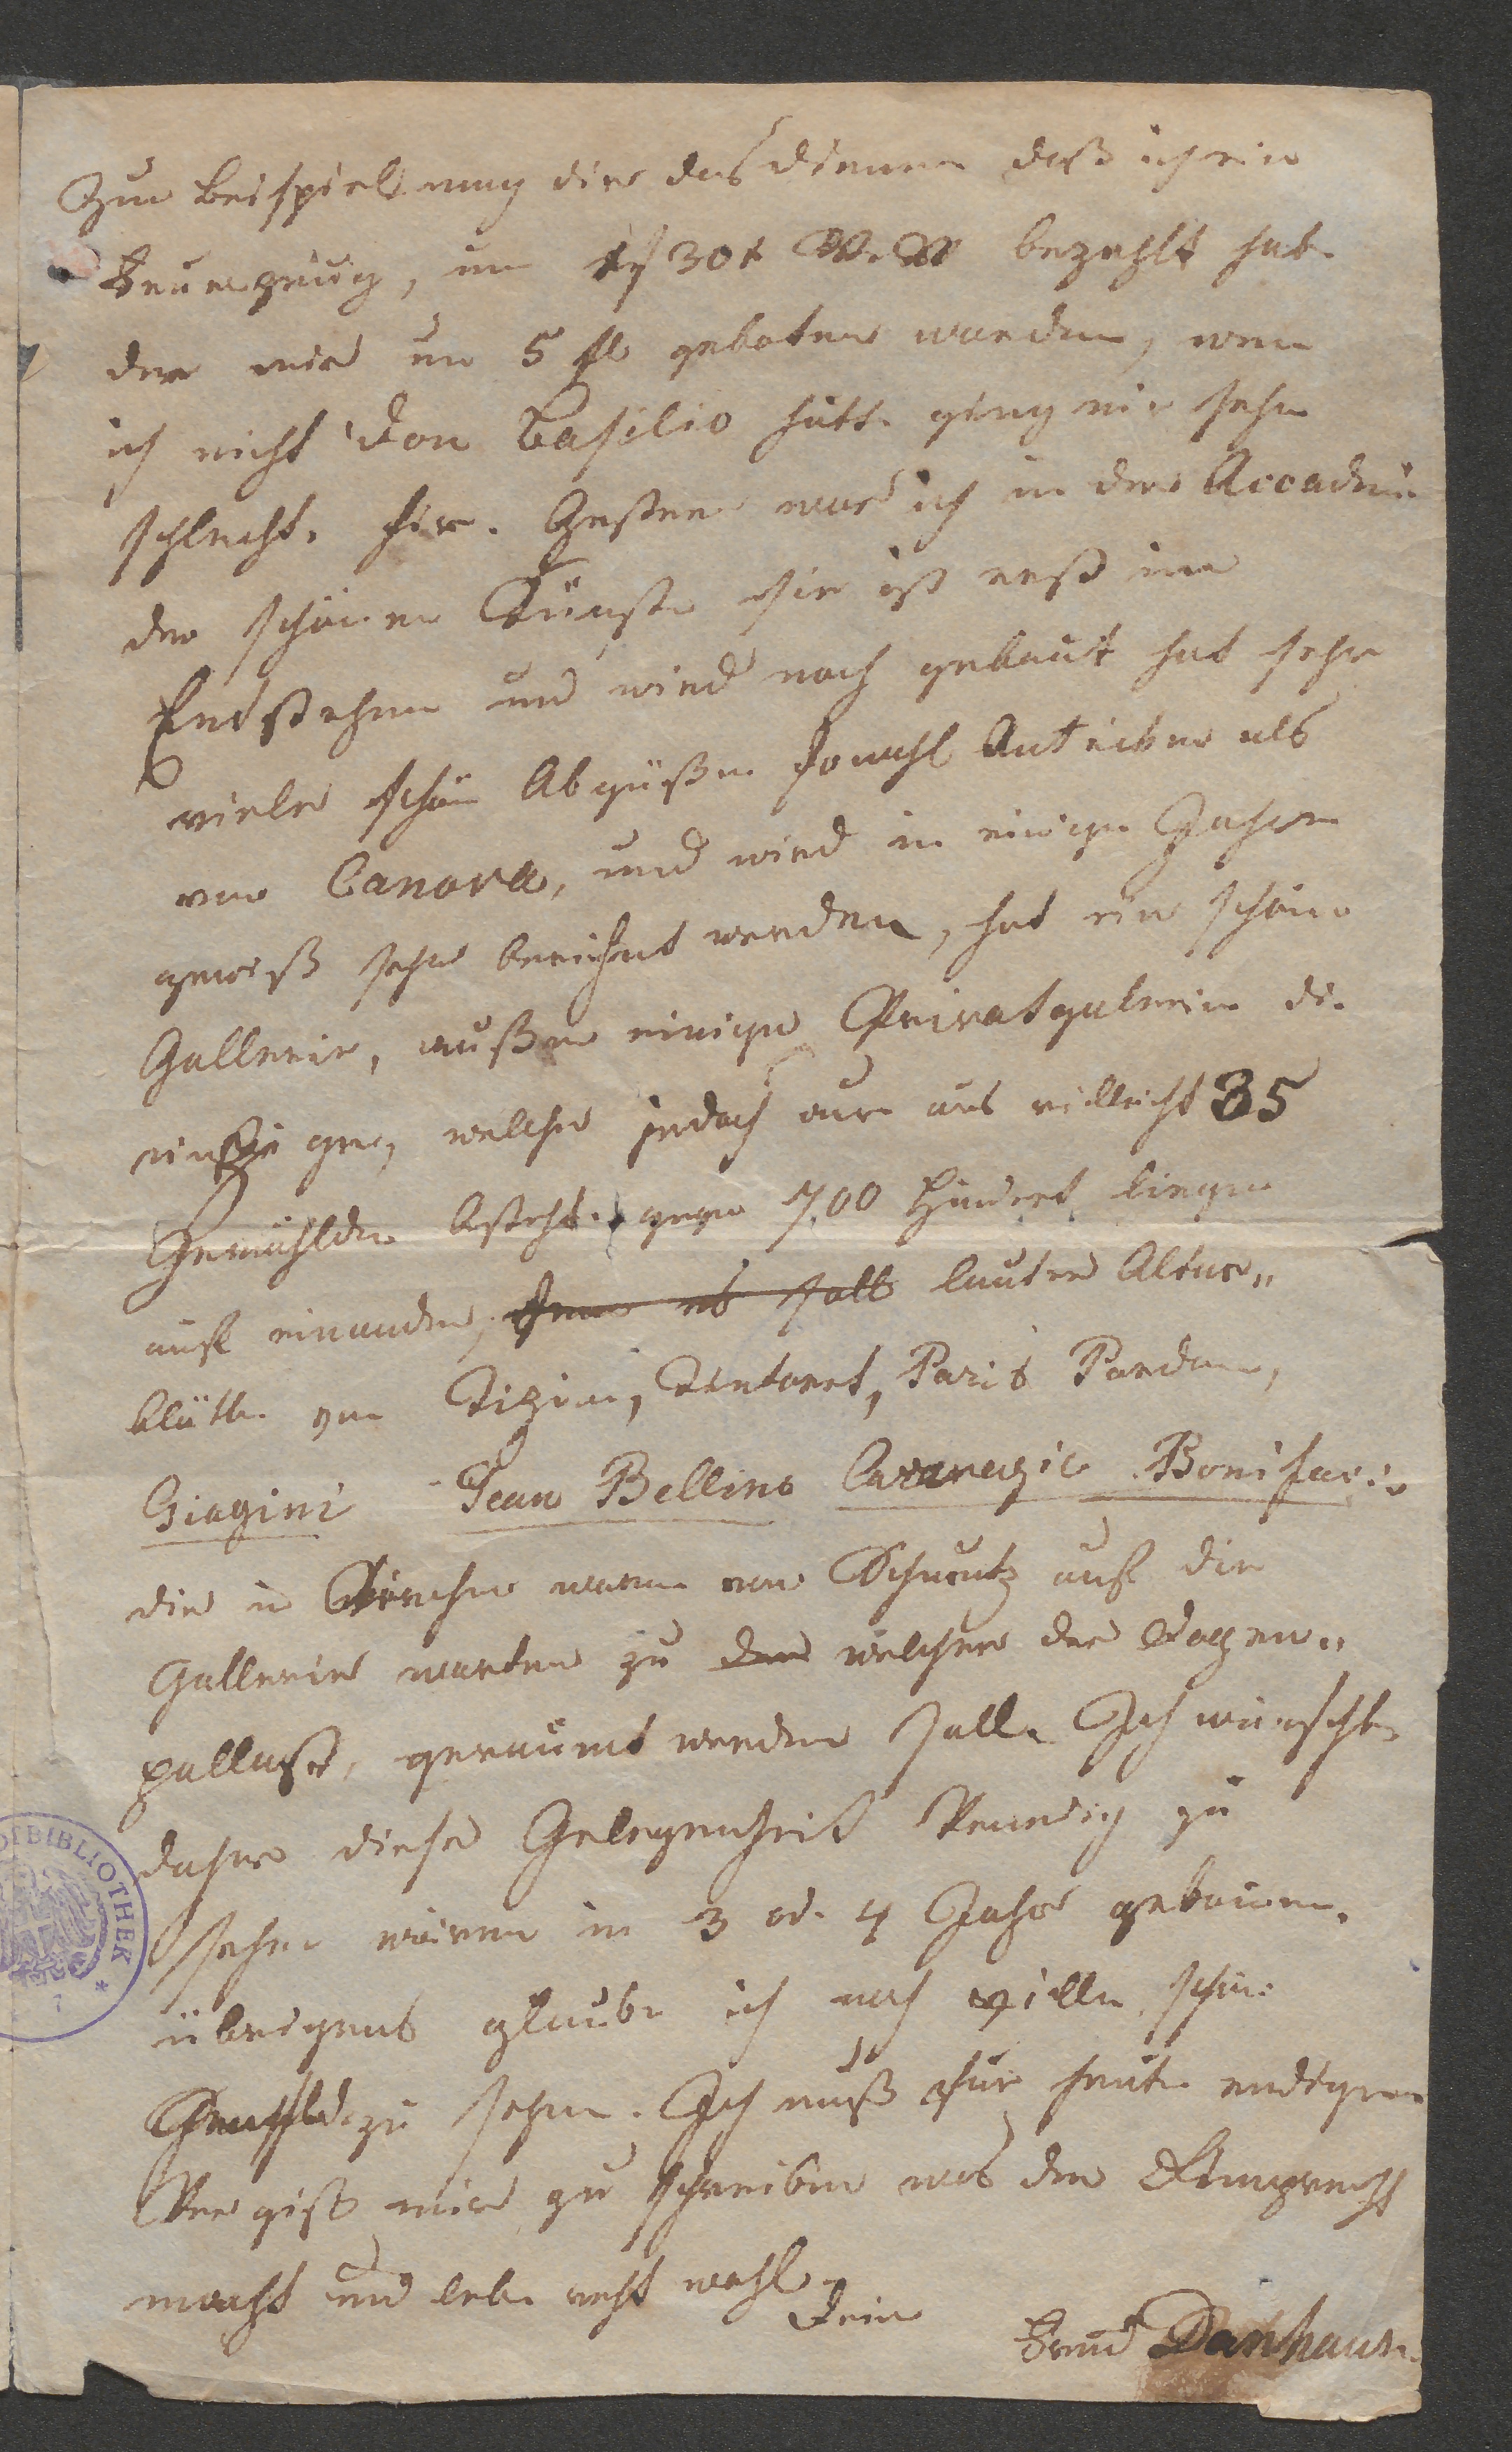 Zum Beispiel mag dir das dienen daß ich ein
Feuerzeug, um 1f 30x W. W bezahlt habe
der mir um 5 fl geboten worden, wen
ich nicht Don Basilio hätte ging mir sehr
schlecht. hir. Gestern war ich in der Accademie
der schönen Künste, hir ist erst im
Entstehen und wird noch gebaut hat sehr
viele schöne Abgüßen sowohl Anticken als
von Canova, und wird in einigen Jahren
gewiß sehr berühmt werden, hat ein schöne
Gallerie, außer einigen Privatgalerien die
einzige, welche jedoch nur aus villeicht 35
Gemählden besteht. gegen 7,00 Hundert liegen
auf einander, denn es soll lauter Altar„
blätter von Tizian, Tintoret, Paris Pordone,
Giogini Jean Bellino Caravagio Bonifacio
die in Kirchen waren von Schmutz auf die
Gallerie warten zu den welcher der Dogen„
pallast, geräumt werden soll. Ich wünschte
daher diese Gelegenheit Venedig zu
sehen wären in 3 od. 4 Jahr gekommen.
übrigens glaube ich noch ville schöne
Gemählde zu sehen. Ich muß für heute endigen
Vergiß mir zu schreiben was der
macht und lebe recht wohl.
Dein
Freund Danhauser
OTBIBLIOTHEK